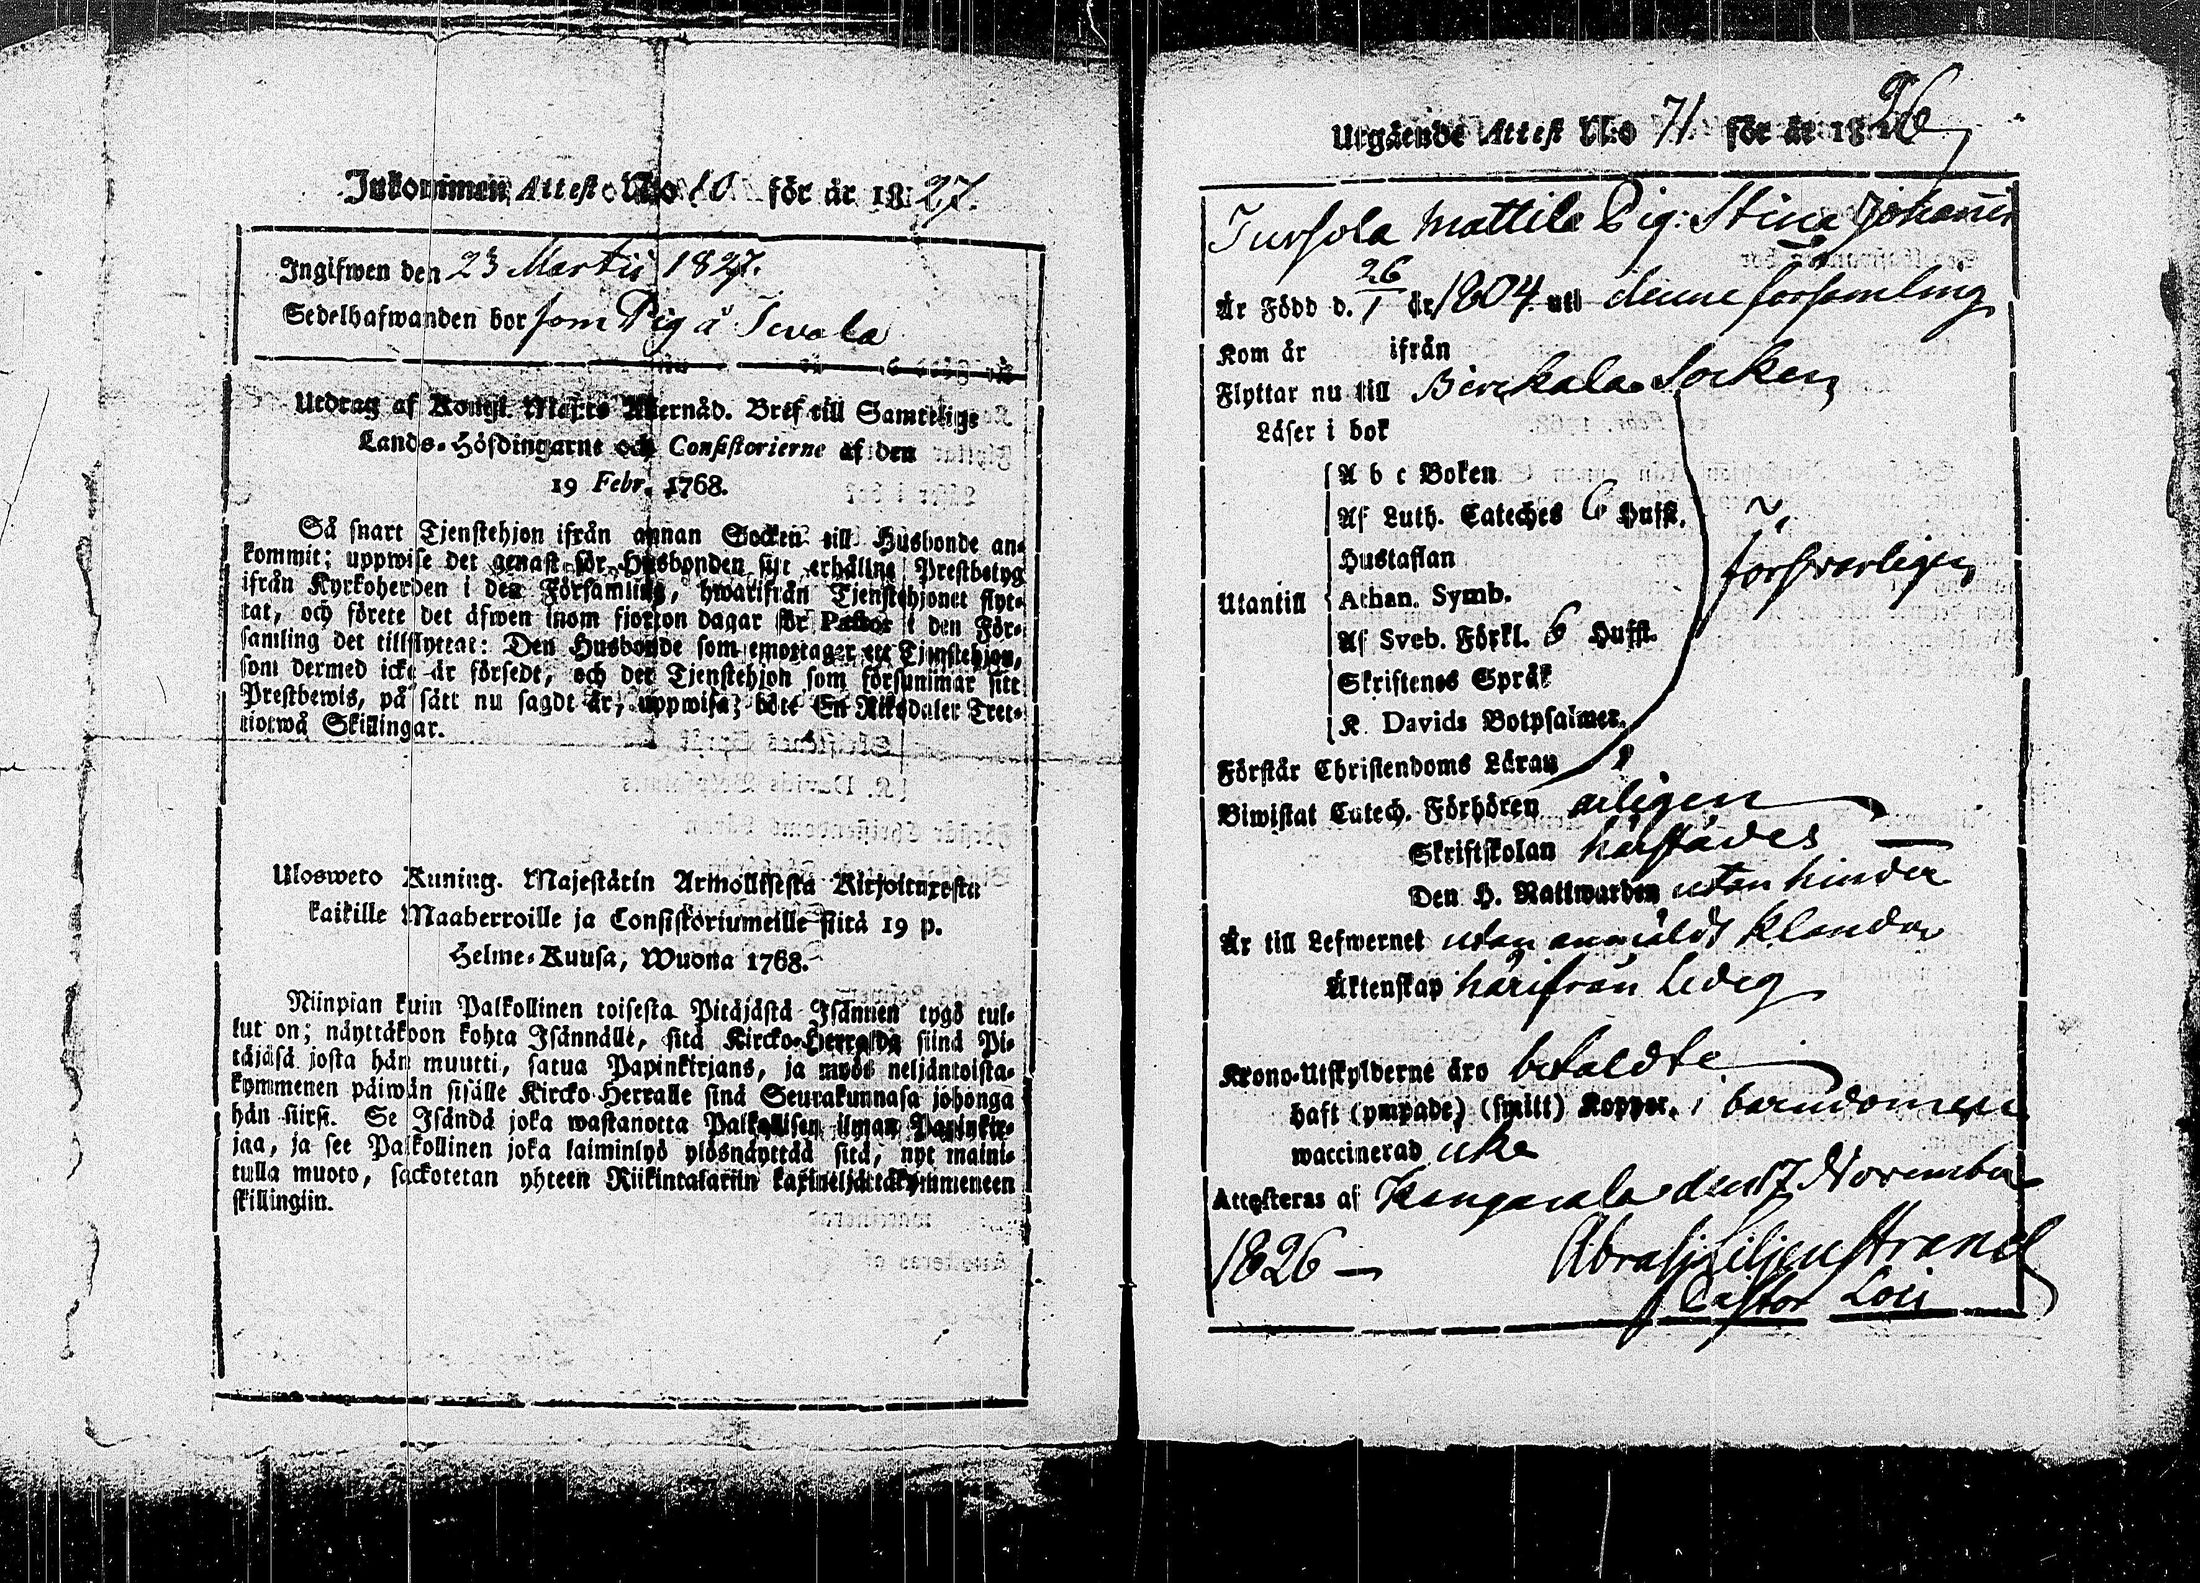 Inkommen Attest N:o 10 för år 1827.
Ingifwen den 23 Martii 1827.
Sedelhafwanden bor som Pig å
Utdrag af Kongl. Maj:ts Allernåd. Bref till Samtelige
Lands-Höfdingarne och Consistorierne af den
19 Febr. 1768.
Så snart Tjenstehjon ifrån annan Socken till Husbonde an-
kommit; uppwise det genast för Husbonden sitt erhållne Prestbetyg
ifrån Kyrkoherden i den Församling, hwarifrån Tjenstehjonet flyt-
tat, och förete det äfwen inom fjorton dagar för Pastor i den För-
samling det tillflyttat: Den Husbonde som emottager ett Tjenstehjon,
som dermed icke är försedt, och det Tjenstehjon som försummar sitt
Prestbewis, på sätt nu sagdt är, uppwisa; böte En Riksdaler Tret-
tiotwå Skillingar.
Ulosweto Kuning. Majestätin Armollisesta Kirjoituxesta
kaikille Maaherroille ja Consistoriumeille siitä 19 p.
Helme-Kuusa, Wuona 1768.
Niinpian kuin Palkollinen toisesta Pitäjästä Isännen tygö tul-
lut on; näyttäkoon kohta Isännälle, sitä Kircko-Herralda siinä Pi-
täjäsä josta hän muutti, saatua Papinkirjans, ja myös neljäntoista-
kymmenen päiwän sisälle Kircko-Herralle siinä Seurakunnasa johonga
hän siirsi. Se Isändä joka wastanotta Palkollisen ilman Papinkir-
jaa, ja see Palkollinen joka laiminlyö ylösnäyttää sitä, nyt maini-
tulla muoto, sackotetan yhteen Riikintalariin kaxineljättäkymmeneen
skillingiin.
Utgående Attest N:o 71 för år 1826
Tursola Mattila Pig: Stina Johansd
Är Född d. 26/1 år 1804 uti denne församling
Kom år ifrån
Flyttar nu till Birckala Socken
Läser i bok
A b c Boken
Af Luth. Cateches 6 Hufst.
Hustaflan
försvarligen
Utantill Athan. Symb.
Af Sveb. Förkl. 6 Hufst.
Skriftenes Språk
K. Davids Botpsalmer
Förstår Christendoms Läran
Biwistat Catech. Förhören årligen
Skriftskolan härstädes
Den H. Nattwarden utan hinder
Är till Lefwernet utan anmäldt klander
Äktenskap härifrån Ledig
Krono-Utskylderne äro betaldte
Haft (ympade) (smitt) Koppor. i barndomen
waccinerad icke
Attesteras af Kangasala den 17 November
1826 — Abrah: Liljenstrand
Pastor Loci